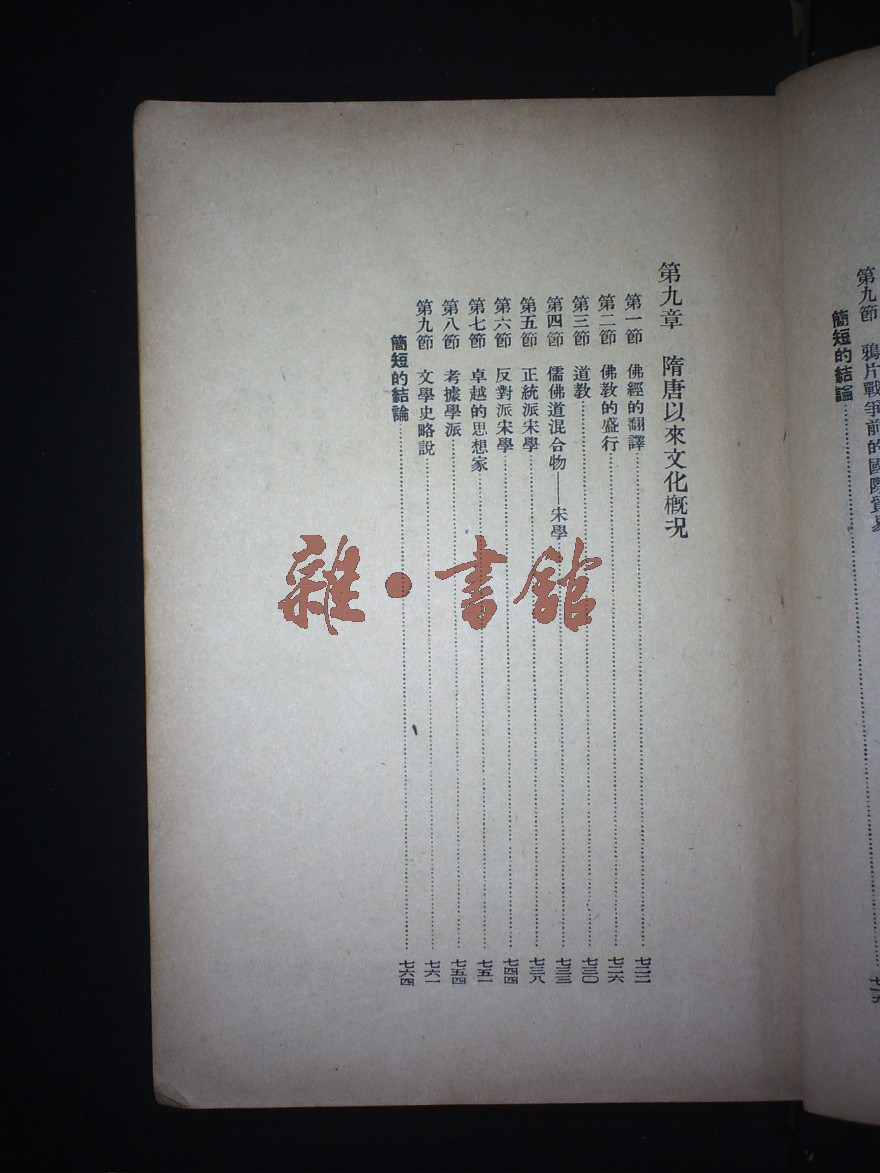 第九節　鴉片戰爭前的國際貿易
簡短的結論
第九章　隋唐以來文化概況
第一節　佛經的翻譯……七二二
第二節　佛教的盛行……七二六
第三節　道教……七三〇
第四節　儒佛道混合物——宋學……七三三
第五節　正統派宋學……七三八
第六節　反對派宋學……七四四
第七節　卓越的思想家……七五一
第八節　考據學派……七五四
第九節　文學史略說……七六一
簡短的結論……七六四
雜·書館